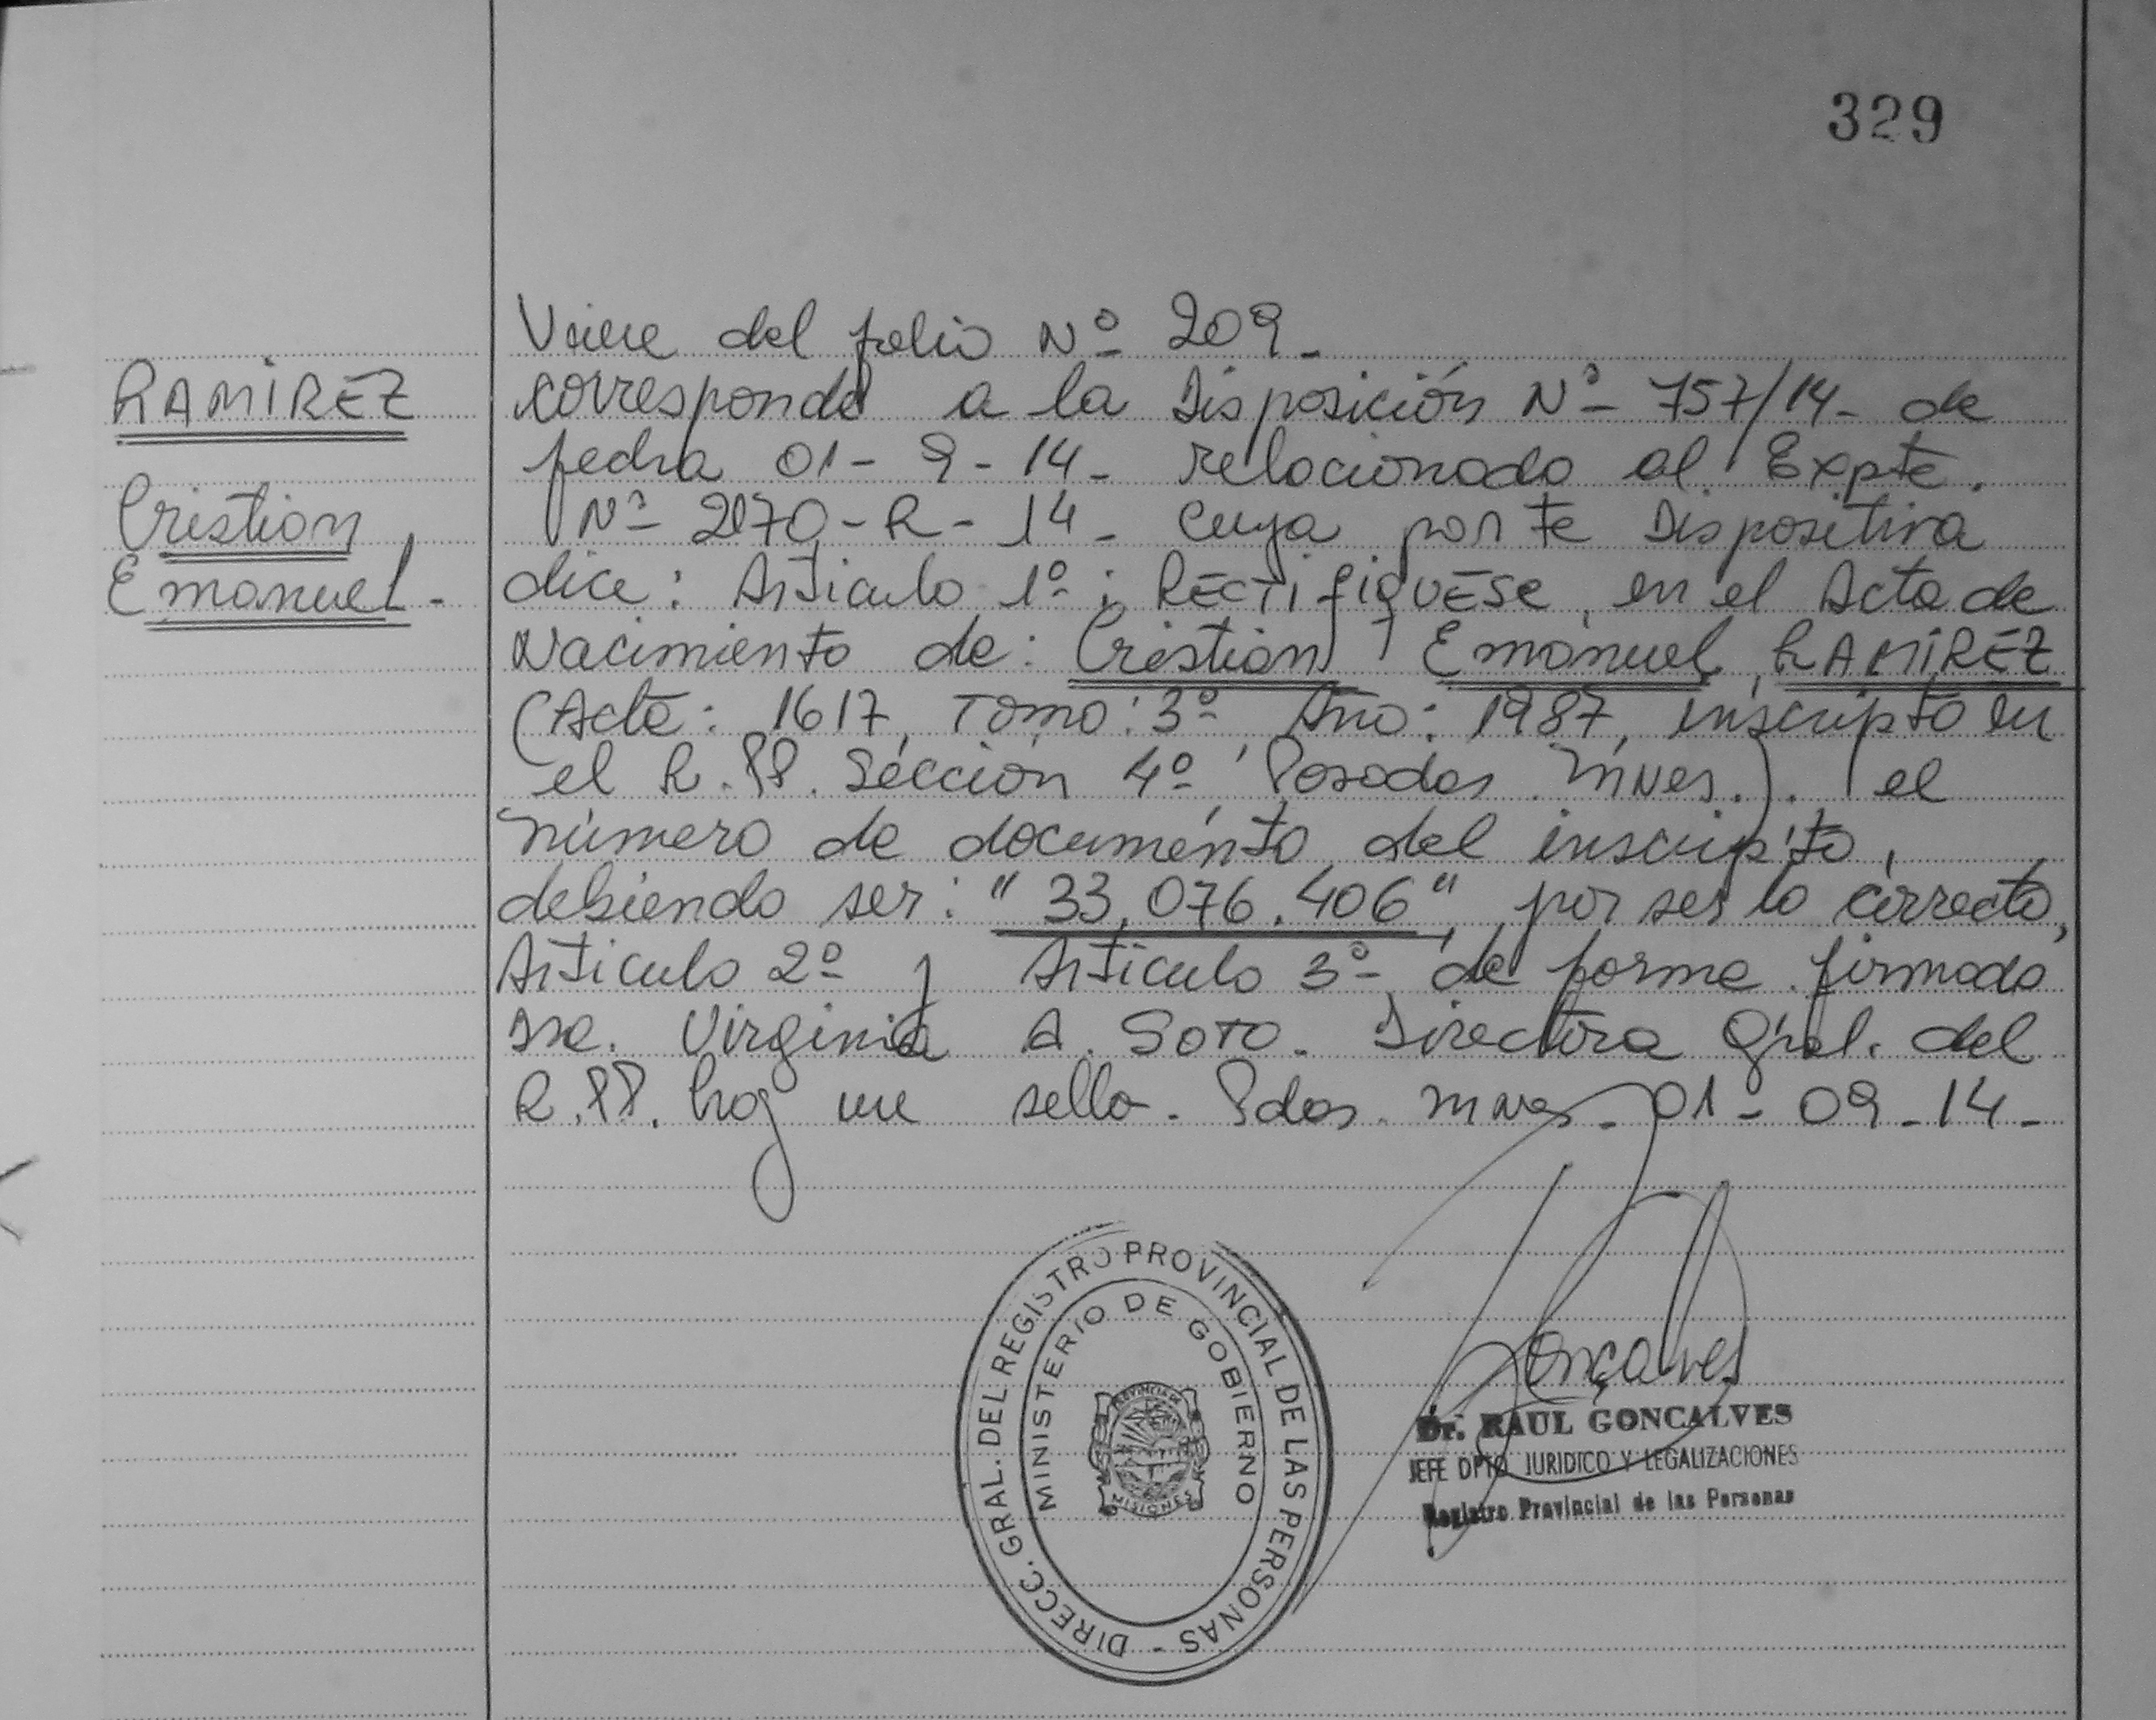 329
Viene del folio Nº 209-
RAMIREZ
corresponde a la Disposición Nº 757/14- de
fecha 01-9-14- relacionado al Expte.
Cristian
Nº 2070-R-14- cuya parte Dispositiva
Emanuel-
dice: Articulo 1º: RECTIFIQUESE, en el Acta de
Nacimiento de: Cristian Emanuel RAMIREZ
(Acta: 1617, Tomo: 3º Año: 1987, inscripto en
el R.PP. Sección 4º, Posadas Mnes.). el
número de documento del inscripto,
debiendo ser: "33.076.406", por ser lo correcto,
Articulo 2º y Articulo 3º de forma. firmado
Virginia A. SOTO. Directora Gral. del
R.PP. hay un sello. Pdas. Mnes. 01-09-14-
DIRECC. GRAL. DEL REGISTRO PROVINCIAL DE LAS PERSONAS -
MINISTERIO DE GOBIERNO
PROVINCIA DE
MISIONES
Gonçalves
Dr. RAUL GONCALVES
JEFE DPTO JURIDICO Y LEGALIZACIONES
Registro Provincial de las Personas